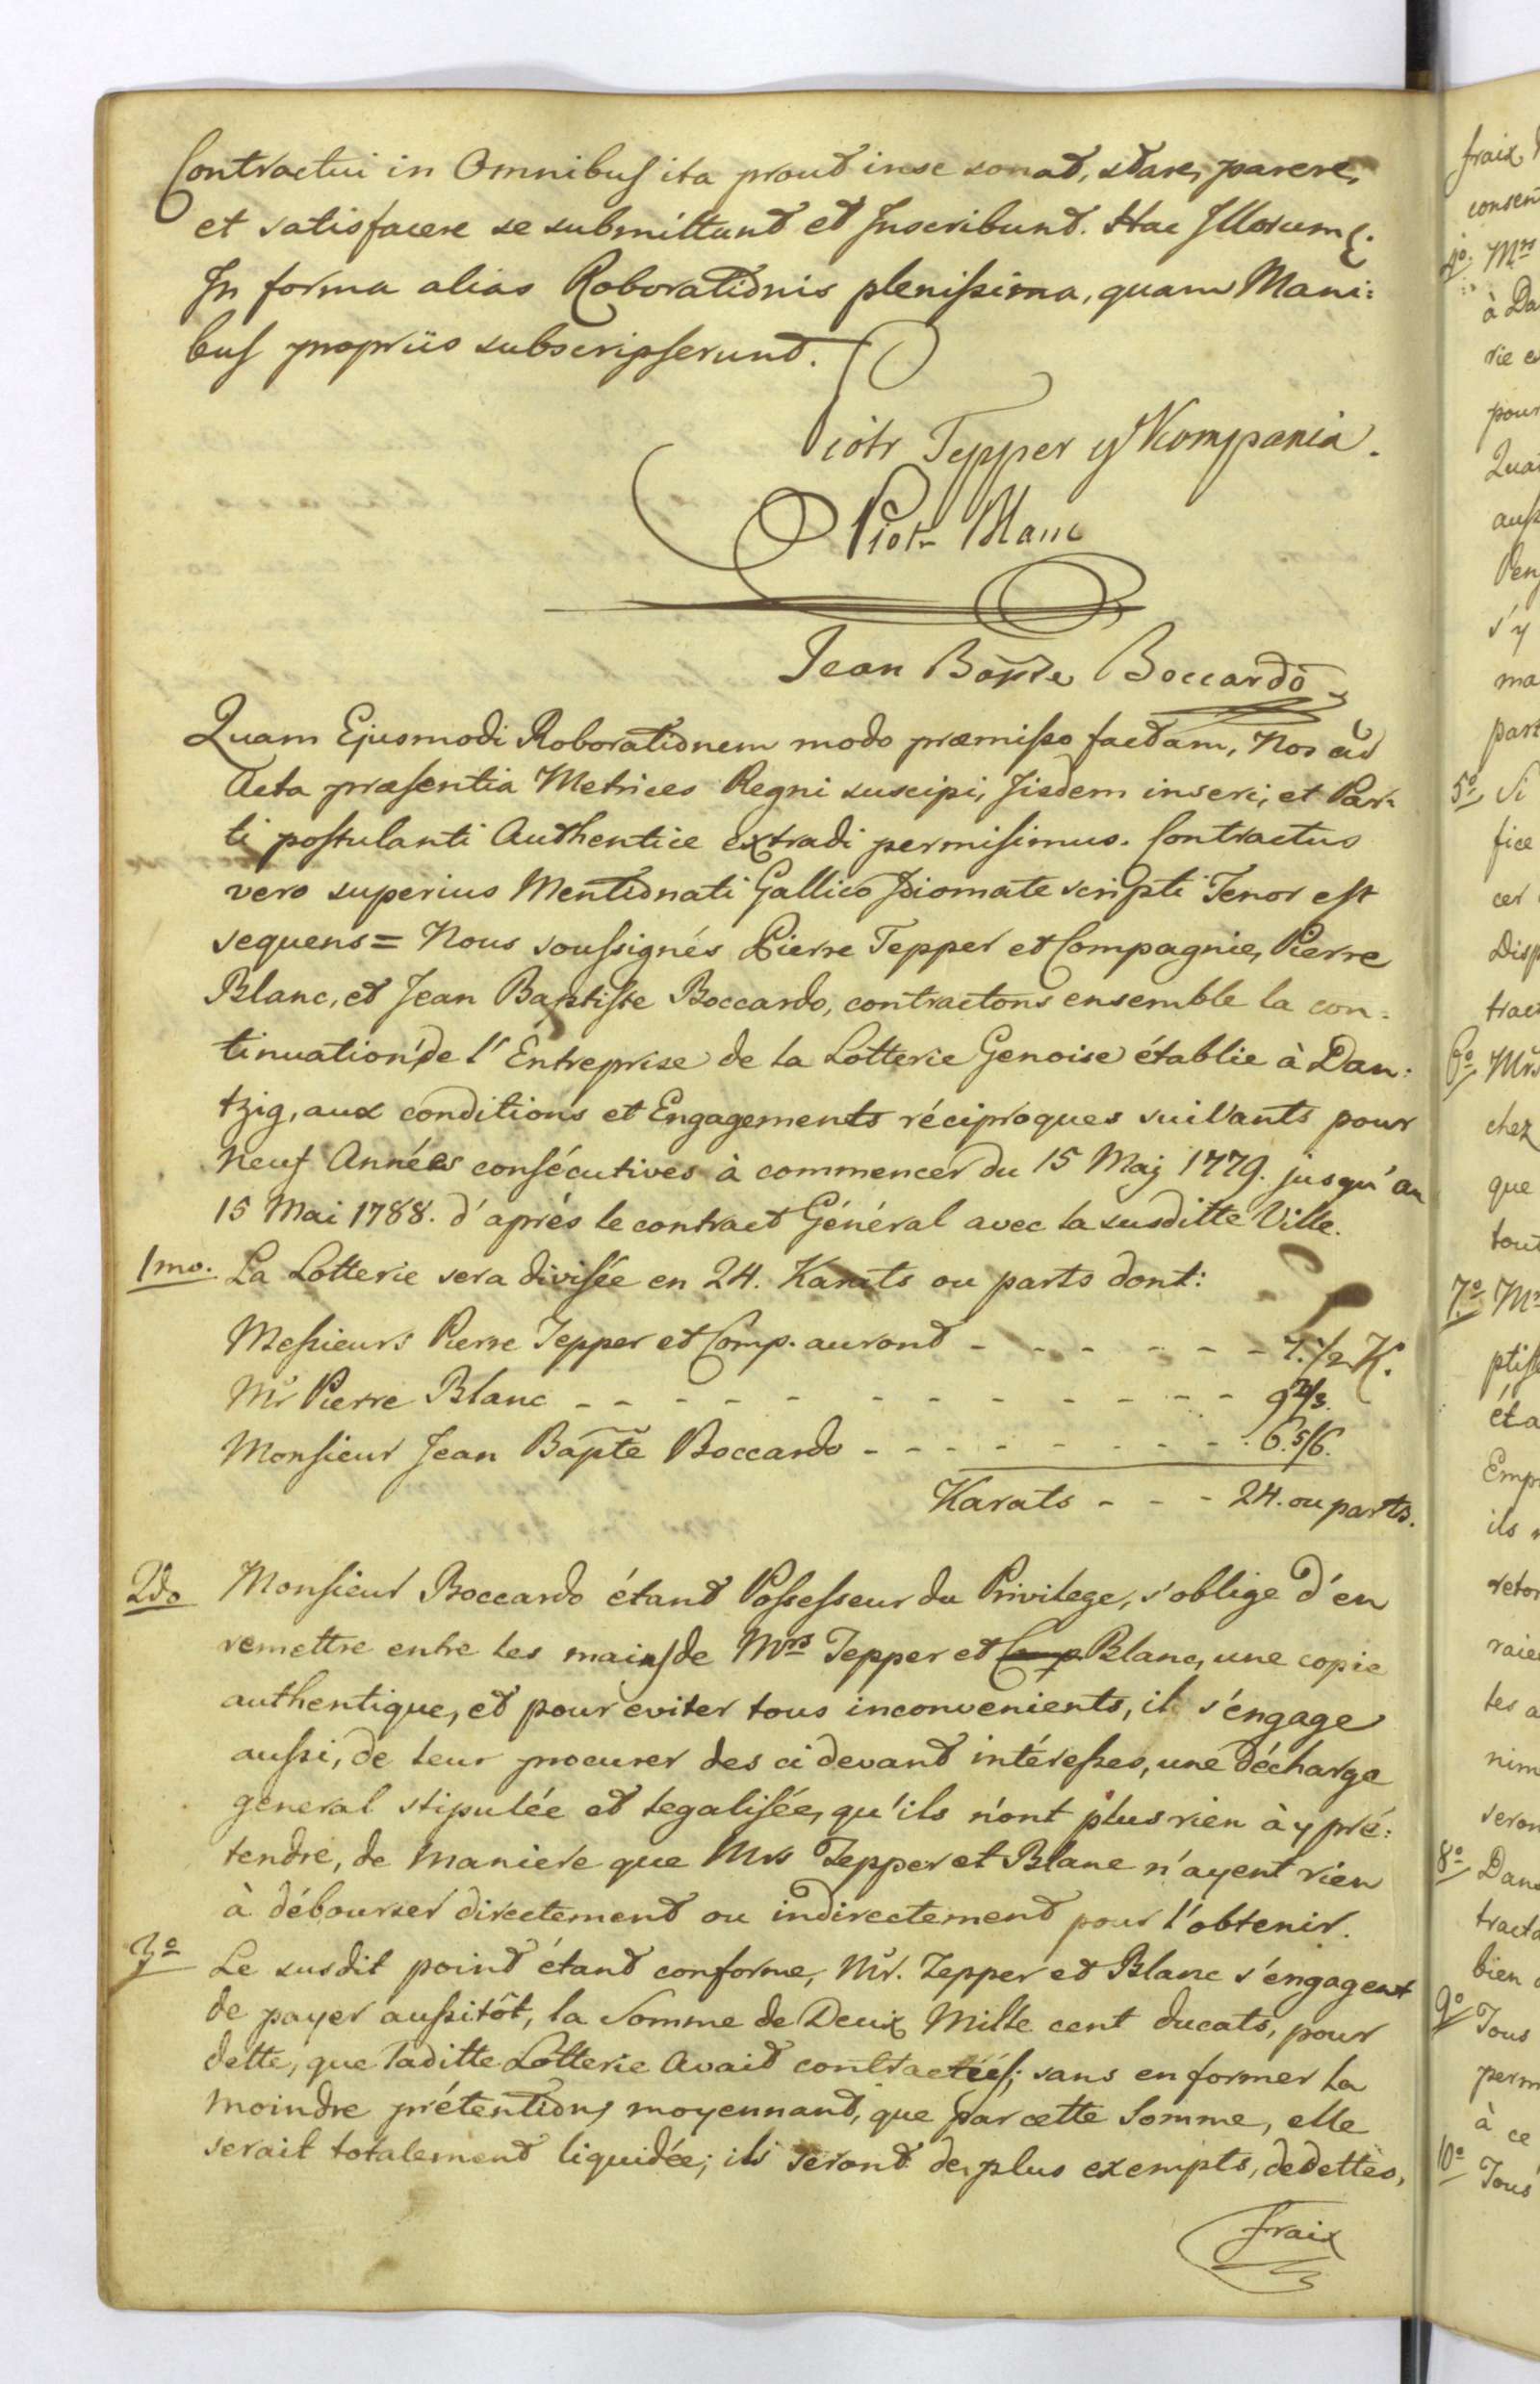 Contractui in Omnibus ita prout in se sonat, stare, parere,
et satisfacere se submittunt et Inscribunt. Hac Illorum
In forma alias Roborationis plenissima, quam Mani:
bus propriis subscripserunt.
Piotr Tepper y Kompania.
Piotr Blanc
Jean Bapte Boccardo
Quam Ejusmodi Roborationem modo præmisso factam, Nos ad
Acta præsentia Metrices Regni suscipi, Iisdem inseri, et Par:
ti postulanti Authentice extradi permisimus. Contractus
vero superius Mentionati Gallico Idiomate scripti Tenor est
sequens = Nous soussignés Pierre Tepper et Compagnie, Pierre
Blanc, et Jean Baptiste Boccardo, contractons ensemble la con:
tinuation de l'Entreprise de la Lotterie Genoise établie à Dan:
tzig, aux conditions et Engagements réciproques suivants pour
Neuf Années consécutives à commencer du 15 Maj 1779. jusqu'au
15 Mai 1788. d'après le contract Général avec la susditte Ville.
1mo. La Lotterie sera divisée en 24. Karats ou parts dont:
Messieurs Pierre Tepper et Comp. auront - - - - - - 7.1/2 K.
Mr Pierre Blanc - - - - - - - - - - - - 9 2/3.
Monsieur Jean Bapte Boccardo - - - - - - - - 6.5/6.
Karats - - - 24. ou parts.
2do Monsieur Boccardo étant Possesseur du Privilege, s'oblige d'en
remettre entre les mains de Mrs Tepper et Comp Blanc, une copie
authentique, et pour eviter tous inconvenients, il s'engage
aussi, de leur procurer des ci devant intéresses, une décharge
general stipulée et legalisée, qu'ils n'ont plus rien à y pré:
tendre, de Maniere que Mrs Tepper et Blanc n'ayent rien
à débourser directement ou indirectement pour l'obtenir.
3o Le susdit point étant conforme, Mr. Tepper et Blanc s'engagent
de payer aussitôt, la Somme de Deux Mille cent ducats, pour
dette, que laditte Lotterie Avait contractées; sans en former la
moindre prétentions moyennant, que par cette Somme, elle
serait totalement liquidée; ils seront de plus exempts, de dettes,
fraix
fraix
consen
4o. Mrs
à Da
rie e
pour
Qua
auss
Pen
s'y
ma
part
5o Si
fice
cer
Disp
tract
6o Mrs
chez
que
tout
7o Mr
ptist
éta
Emp
ils
retor
raie
les a
nim
seron
8o Dans
tracta
bien
9o Tous
perm
à ce
10o Tous